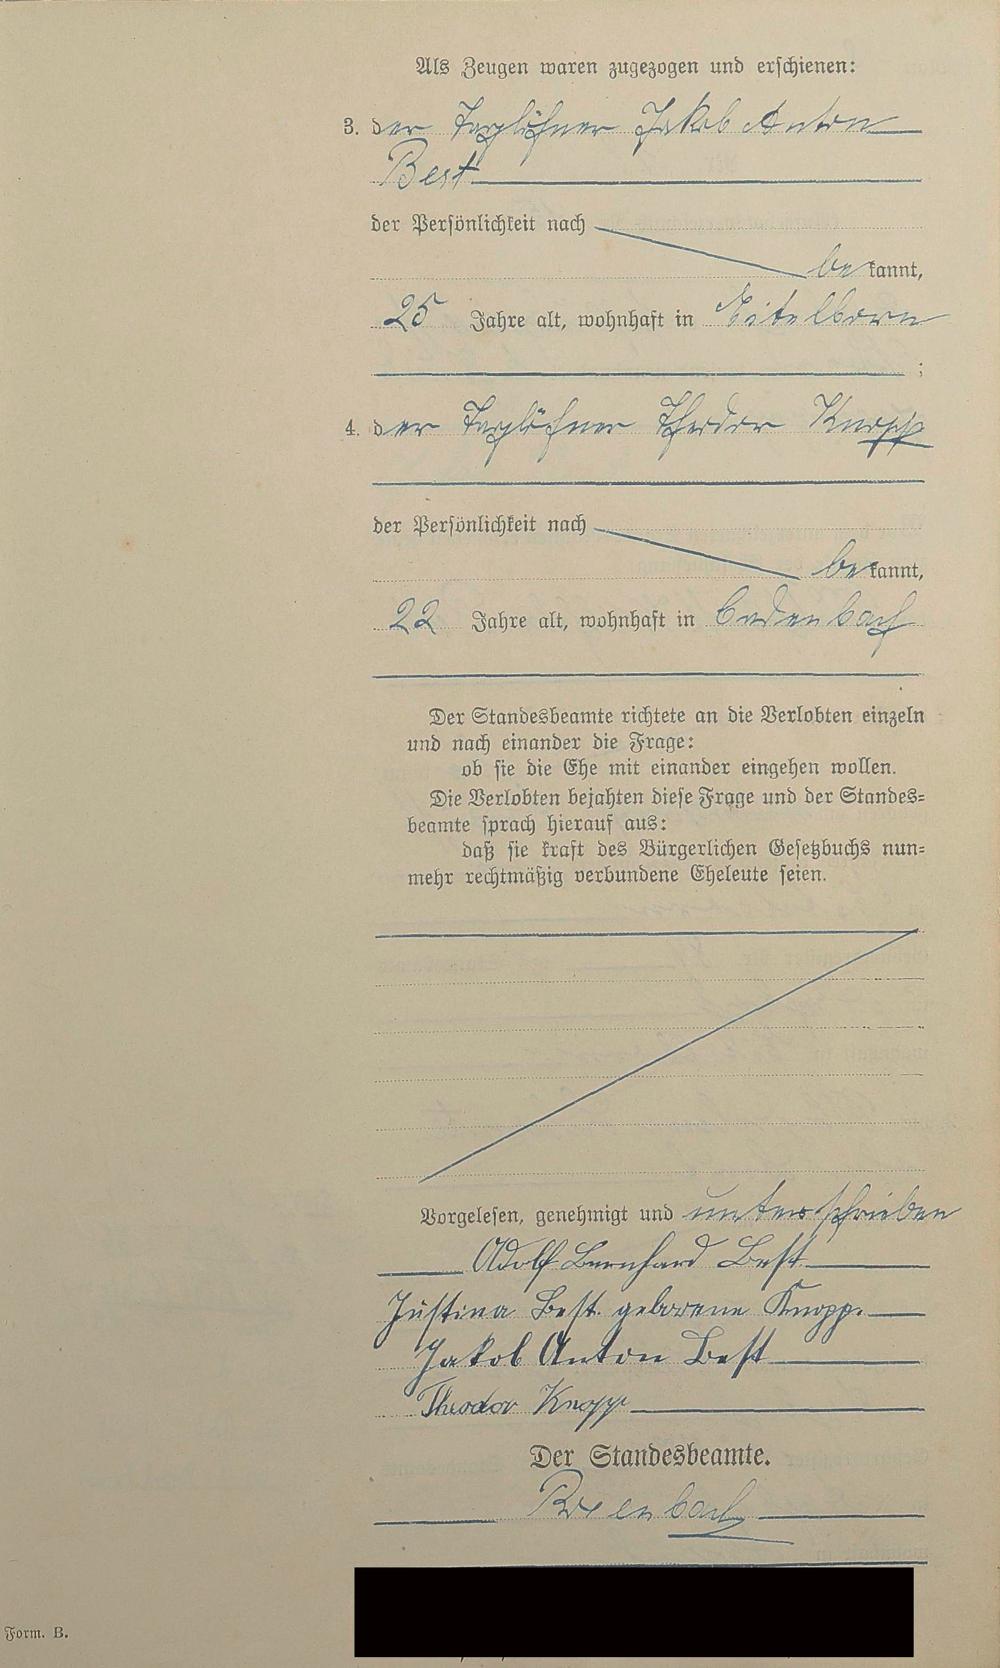 Als Zeugen waren zugezogen und erschienen:
3. der Taglöhner Jakob Anton
Best
der Persönlichkeit nach
bekannt,
25 Jahre alt, wohnhaft in Eitelborn
;
4. der Taglöhner Theodor Knopp
der Persönlichkeit nach
bekannt,
22 Jahre alt, wohnhaft in Cadenbach
Der Standesbeamte richtete an die Verlobten einzeln
und nach einander die Frage:
ob sie die Ehe mit einander eingehen wollen.
Die Verlobten bejahten diese Frage und der Standes-
beamte sprach hierauf aus:
daß sie kraft des Bürgerlichen Gesetzbuchs nun-
mehr rechtmäßig verbundene Eheleute seien.
Vorgelesen, genehmigt und unterschrieben
Adolf Bernhard Best
Justina Best geborene Knopp.
Jakob Anton Best
Theodor Knopp
Der Standesbeamte.
Form. B.